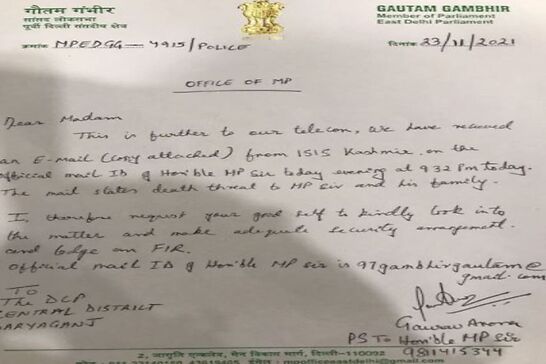 गौतम गंभीर
सांसद लोकसभा
पूर्वी दिल्ली संसदीय क्षेत्र
GAUTAM GAMBHIR
Member of Parliament
East Delhi Parliament
क्रमांक MPEDGG-4915/POLICE
दिनांक 23/11/2021
OFFICE OF MP
Dear Madam
This is further to our telecon, we have received
an E-mail (copy attached) from ISIS Kashmir on the
official mail ID of Hon'ble MP Sir today evening at 9.32 Pm today.
The mail states death threat to MP Sir and his family.
I, therefore request your good self to kindly look into
the matter and make adequate security arrangement.
and lodge an FIR.
Official mail ID of Hon'ble MP Sir is 97gambhirgautam@
gmail.com
TO
The DCP
CENTRAL DISTRICT
DARYAGANJ
Gaurav Arora
PS To Hon'ble MP Sir
9811415344
2, जागृति एन्क्लेव, मेन विकास मार्ग, दिल्ली-110092